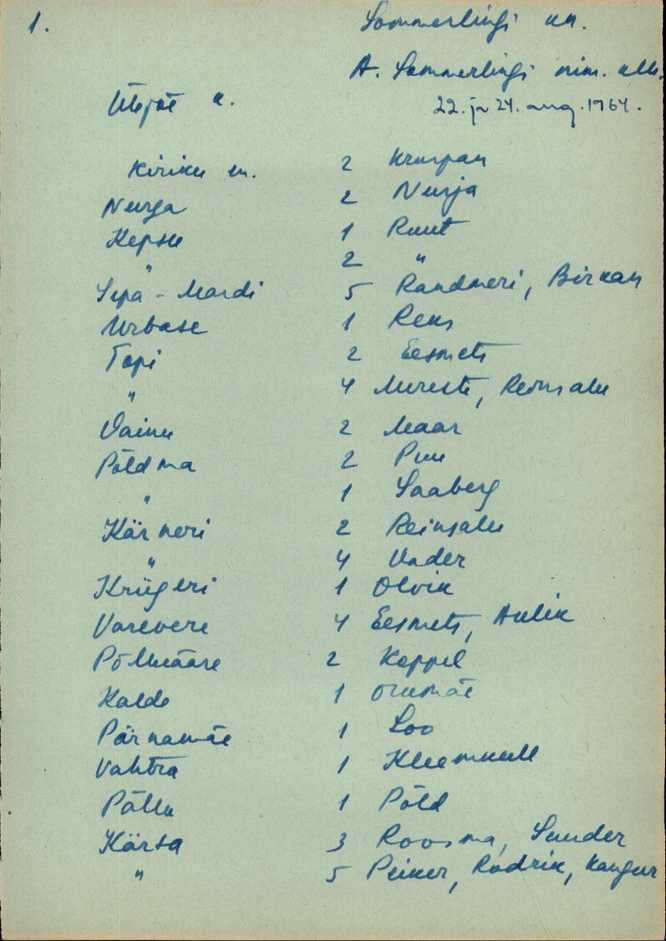 1. Sommerlingi
A. Sommerlingi nim.
22. ja 24. aug. 1964.
Kiriku m. 2 Kruspan
Nurga 2 Nurja
Kepsu 1 Ruut
" 2 "
Sepa - Mardi 5 Randmeri, Birkan
Urbase 1 Rens
Topi 2 Eesmets
" 4 Mureste, Reinsalu
Vainu 2 Maar
Põldma 2 Puu
" 1 Saaberg
Kärneri 2 Reinsalu
" 4 Uader
Krügeri 1 Olvik
Varevere 4 Eesmets, Aulik
Põlluääre 2 Koppel
Kalde 1 Orumäe
Pärnamäe 1 Loo
Vahtra 1 Kleemkull
Põllu 1 Põld
Kärsa 3 Roosma, Sunder
" 5 Peiker, Rodrik, Kangur